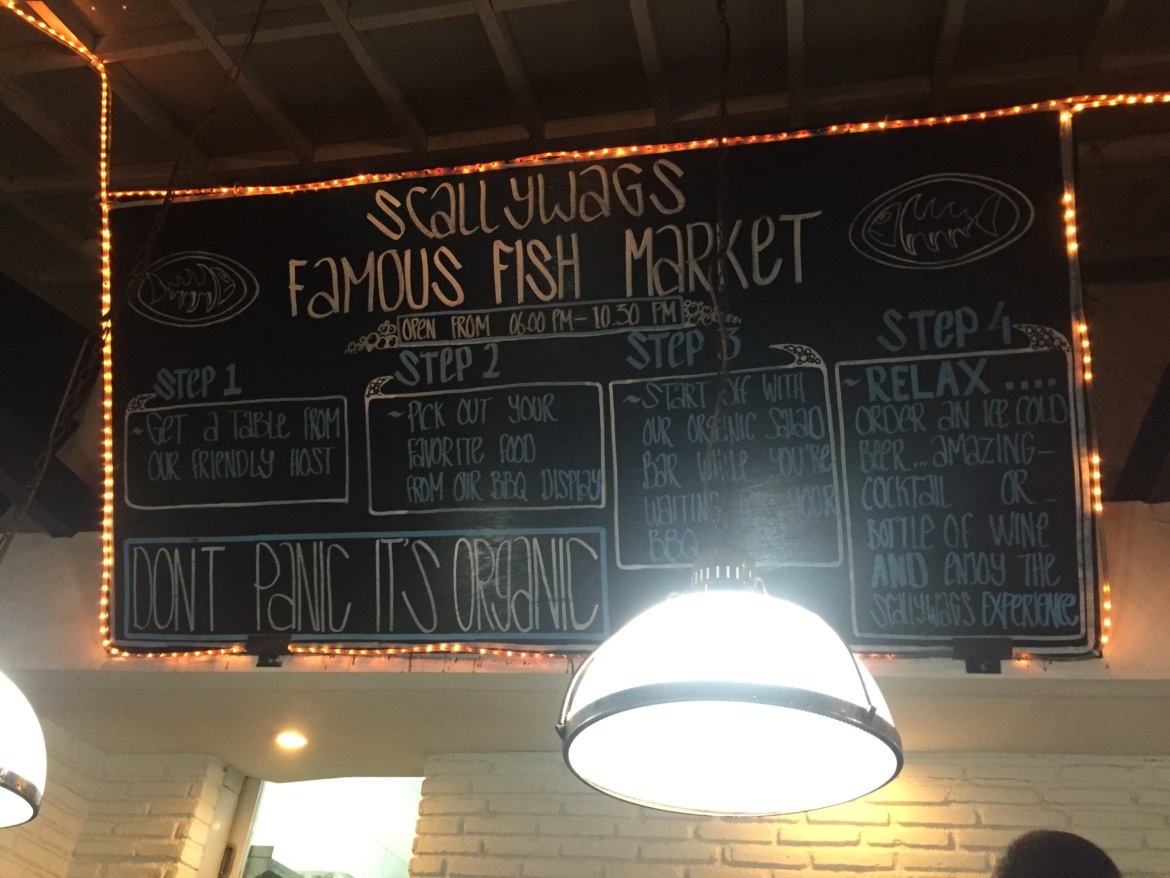 SCALLYWAGS
FAMOUS FISH MARKET
OPEN FROM 06.00 PM - 10.30 PM
STEP 1
~GET A TABLE FROM
OUR FRIENDLY HOST
STEP 2
~PICK OUT YOUR
FAVORITE FOOD
FROM OUR BBQ DISPLAY
STEP 3
~START OFF WITH
OUR ORGANIC SALAD
BAR WHILE YOU'RE
WAITING YOUR
BBQ
STEP 4
~RELAX ....
ORDER AN ICE COLD
BEER... AMAZING-
COCKTAIL OR-
BOTTLE OF WINE
AND ENJOY THE
SCALLYWAGS EXPERIENCE
DONT PANIC IT'S ORGANIC